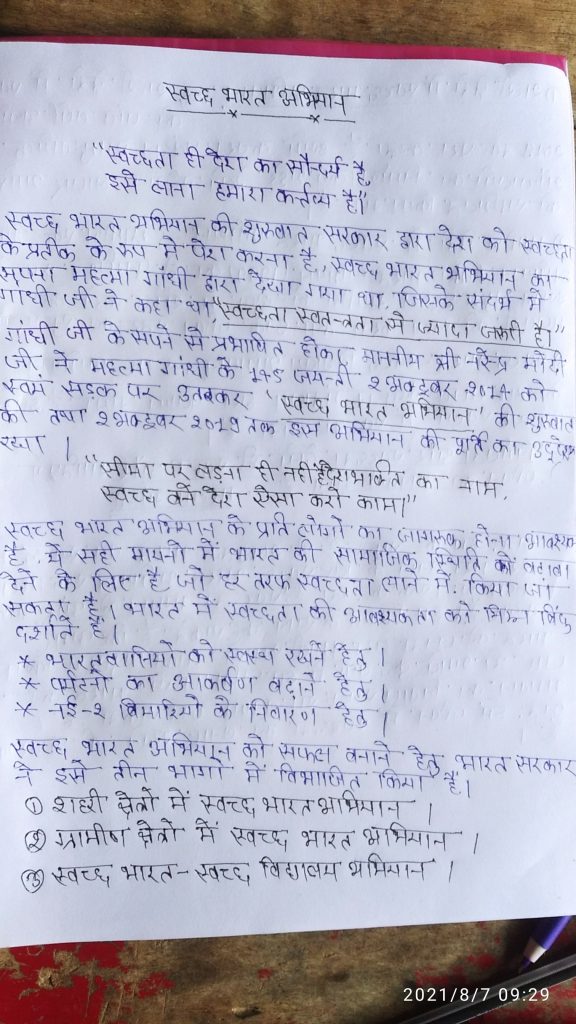 स्वच्छ भारत अभियान
"स्वच्छता ही देश का सौन्दर्य है,
इसे लाना हमारा कर्त्तव्य है।"
स्वच्छ भारत अभियान की शुरुवात सरकार द्वारा देश को स्वच्छता
के प्रतीक के रुप मे पेश करना है, स्वच्छ भारत अभियान का
सपना महत्मा गांधी द्वारा देखा गया था, जिसके संदर्भ में
गांधी जी ने कहा था, "स्वच्छता स्वतन्त्रता से ज्यादा जरुरी है।"
गांधी जी के सपने से प्रभावित होकर, माननीय श्री नरेन्द्र मोदी
जी ने महत्मा गांधी के 145 जयन्ती 2 अक्टूबर 2014 को
स्वयं सड़क पर उतरकर 'स्वच्छ भारत अभियान' की शुरुवात
की तथा 2 अक्टूबर 2019 तक इस अभियान की पूर्ति का उद्देश्य
रखा ।
"सीमा पर लड़ना ही नहीं है देशभक्ति का नाम,
स्वच्छ बने देश ऐसा करो काम।"
स्वच्छ भारत अभियान के प्रति लोगों का जागरुक होना आवश्यक
है, ये सही मायनों में भारत की सामाजिक स्थिति को बढ़ावा
देने के लिए है जो हर तरफ स्वच्छता लाने में किया जा
सकता है। भारत में स्वच्छता की आवश्यकता को निम्न बिंदु
दर्शाते हैं।
* भारतवासियों को स्वस्थ रखने हेतु ।
* पर्यटनों का आकर्षण बढ़ाने हेतु ।
* नई-2 बिमारियों के निवारण हेतु ।
स्वच्छ भारत अभियान को सफल बनाने हेतु भारत सरकार
ने इसे तीन भागों में विभाजित किया है।
① शहरी क्षेत्रों में स्वच्छ भारत अभियान ।
② ग्रामीण क्षेत्रों में स्वच्छ भारत अभियान ।
③ स्वच्छ भारत - स्वच्छ विद्यालय अभियान ।
2021/8/7 09:29